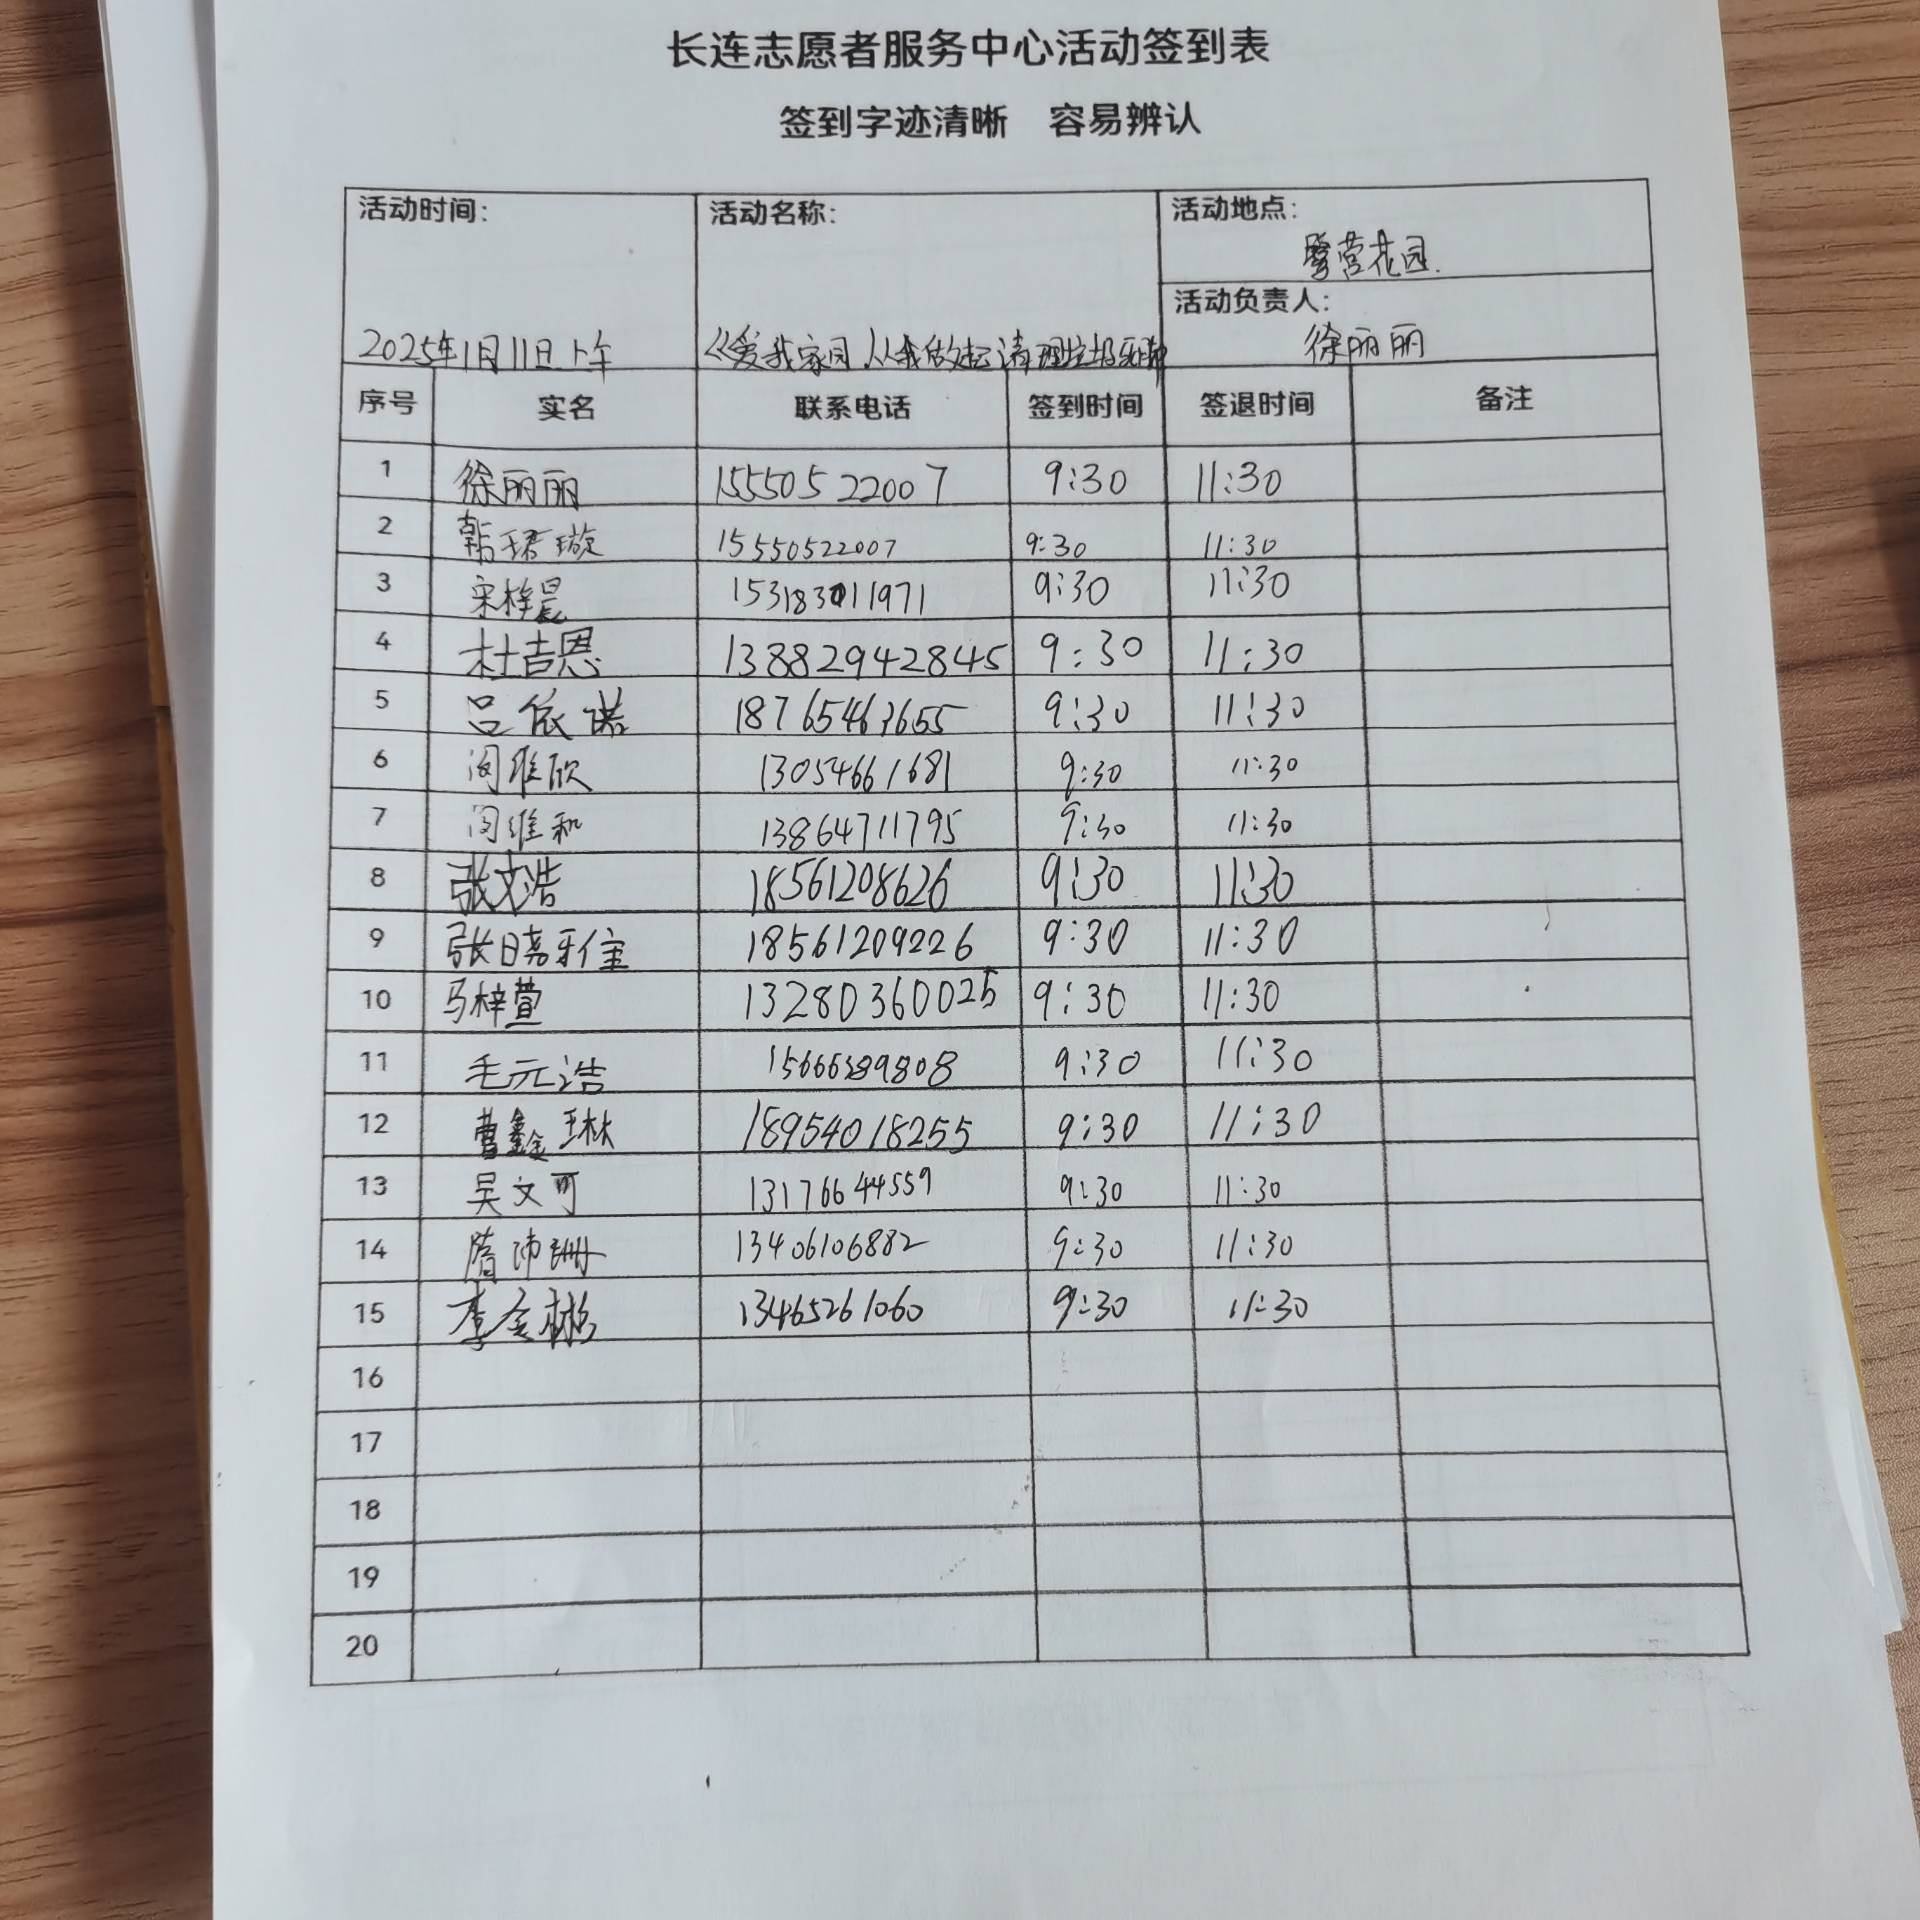 长连志愿者服务中心活动签到表
签到字迹清晰 容易辨认
活动时间:
2025年1月11日上午
活动名称:
《爱我家园从我做起清理垃圾
活动地点:
营花园.
活动负责人:
徐丽丽
序号 实名 联系电话 签到时间 签退时间 备注
1 徐丽丽 15550522007 9:30 11:30
2 韩珺璇 15550522007 9:30 11:30
3 宋梓晨 9:30 11:30
4 杜吉恩 13882942845 9:30 11:30
5 吕依诺 18765463655 9:30 11:30
6 闵维欣 13054661681 9:30 11:30
7 闵维和 13864711795 9:30 11:30
8 张文浩 18561208626 9:30 11:30
9 张晓雅 18561209226 9:30 11:30
10 马梓萱 13280360025 9:30 11:30
11 毛元浩 15666389808 9:30 11:30
12 曹鑫琳 18954018255 9:30 11:30
13 吴文可 13176644559 9:30 11:30
14 隋沛珊 13406106882 9:30 11:30
15 李金彬 13465261060 9:30 11:30
16
17
18
19
20